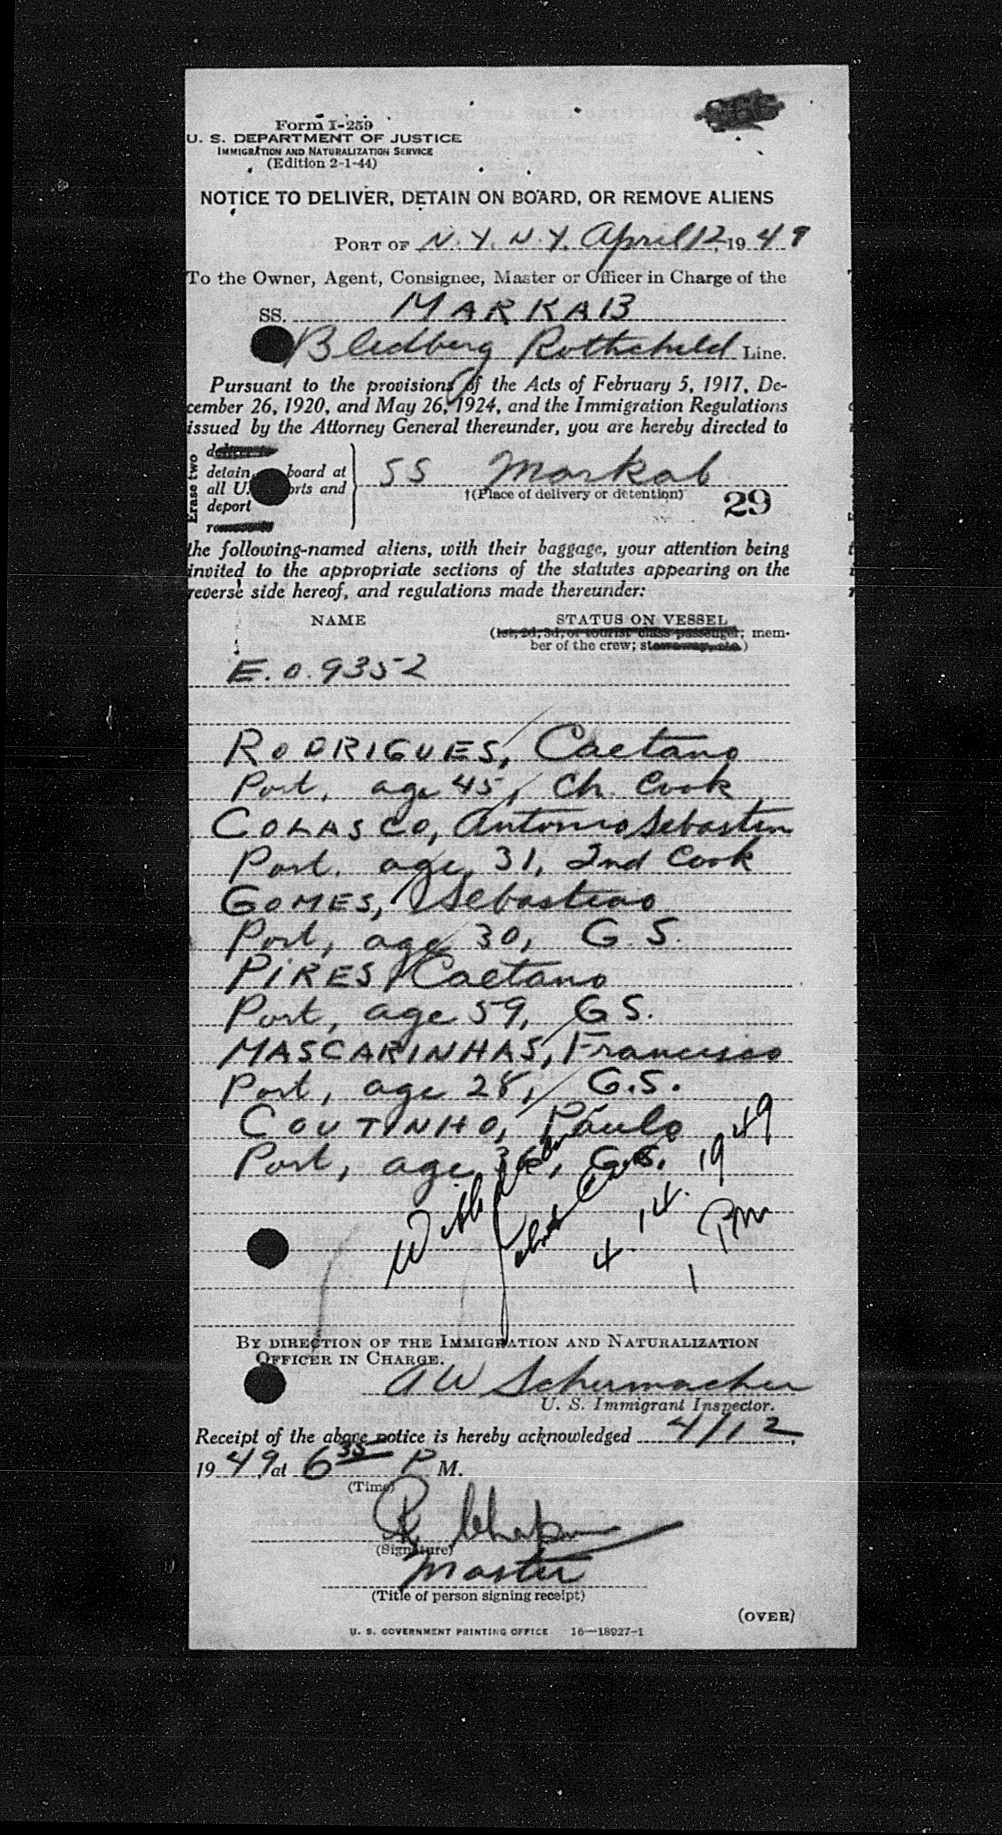 Form I-259
U. S. DEPARTMENT OF JUSTICE
IMMIGRATION AND NATURALIZATION SERVICE
(Edition 2-1-44)
NOTICE TO DELIVER, DETAIN ON BOARD, OR REMOVE ALIENS
PORT OF N.Y. N.Y. April 12, 1949
To the Owner, Agent, Consignee, Master or Officer in Charge of the
SS. MARKAB
Bledberg Rothchild Line.
Pursuant to the provisions of the Acts of February 5, 1917, De-
cember 26, 1920, and May 26, 1924, and the Immigration Regulations
issued by the Attorney General thereunder, you are hereby directed to
Erase two
detain board at
all U. orts and
deport
SS Markab
†(Place of delivery or detention)
29
the following-named aliens, with their baggage, your attention being
invited to the appropriate sections of the statutes appearing on the
reverse side hereof, and regulations made thereunder:
NAME STATUS ON VESSEL
(1st, 2d, 3d, or tourist class passenger; mem-
ber of the crew; stowaway, etc.)
E.O. 9352
RODRIGUES, Caetano
Port, age 45, Ch. Cook
COLASCO, Antonio Sebastin
Port. age 31, 2nd Cook
GOMES, Sebastiao
Port, age 30, G.S.
PIRES, Caetano
Port, age 59, GS.
MASCARINHAS, Francisco
Port, age 28, G.S.
COUTINHO, Paulo
Port, age 36, G.S.
4. 14. 1949
1 PM
BY DIRECTION OF THE IMMIGRATION AND NATURALIZATION
OFFICER IN CHARGE.
A W Schermacher
U. S. Immigrant Inspector.
Receipt of the above notice is hereby acknowledged 4/12,
1949, at 6 35 P M.
(Time)
(Signature)
Master
(Title of person signing receipt)
(OVER)
U. S. GOVERNMENT PRINTING OFFICE 16—18927-1